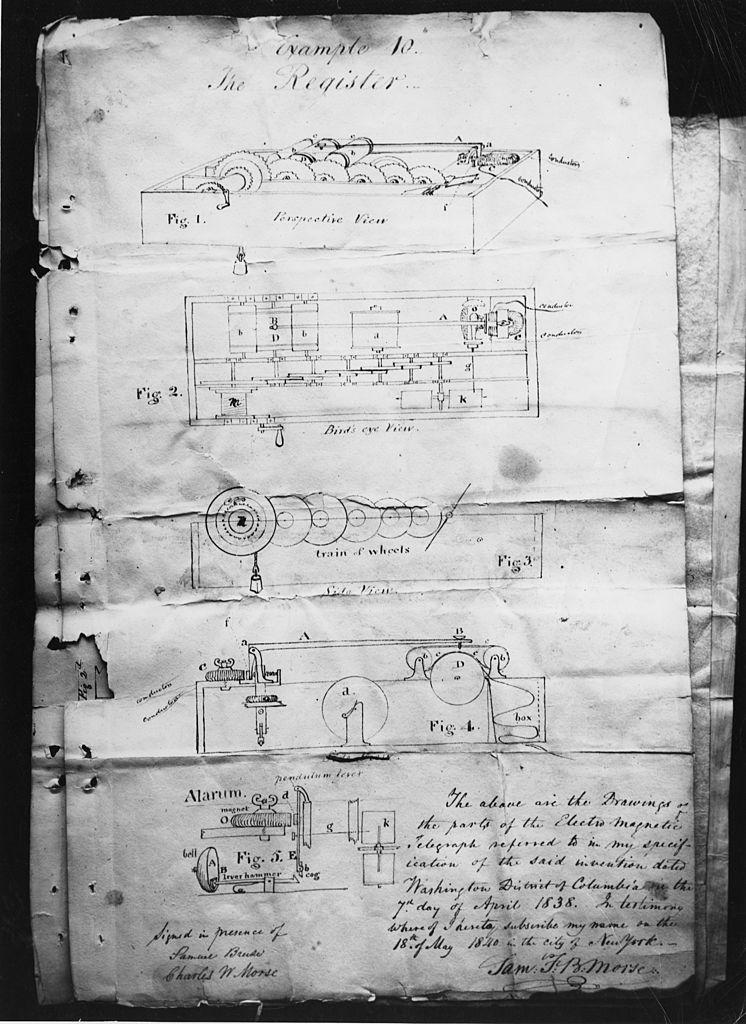 Example 10.
The Register.
A
a
c
c
b
b
conductors
conductors
f
Fig. 1.
Perspective View
b
B
D
b
a
A
conductor
conductors
g
k
Fig. 2.
Bird's eye View.
train of wheels
Fig 3.
Side View.
f
a
A
B
C
b
e
e
b
D
conductors
conductors
a
Fig. 4.
box
Fig 2d
pendulum lever
Alarum.
magnet
d
O
g
k
bell
A
B
Fig. 5.
E
lever hammer
b
cog
The above are the Drawings of
the parts of the Electro Magnetic
Telegraph referred to in my specif-
ication of the said invention dated
Washington District of Columbia on the
7th day of April 1838. In testimony
where of I hereto subscribe my name on the
18th of May 1840 in the city of New York.—
Sam. F. B. Morse.
Signed in presence of
Samuel
Charles W Morse